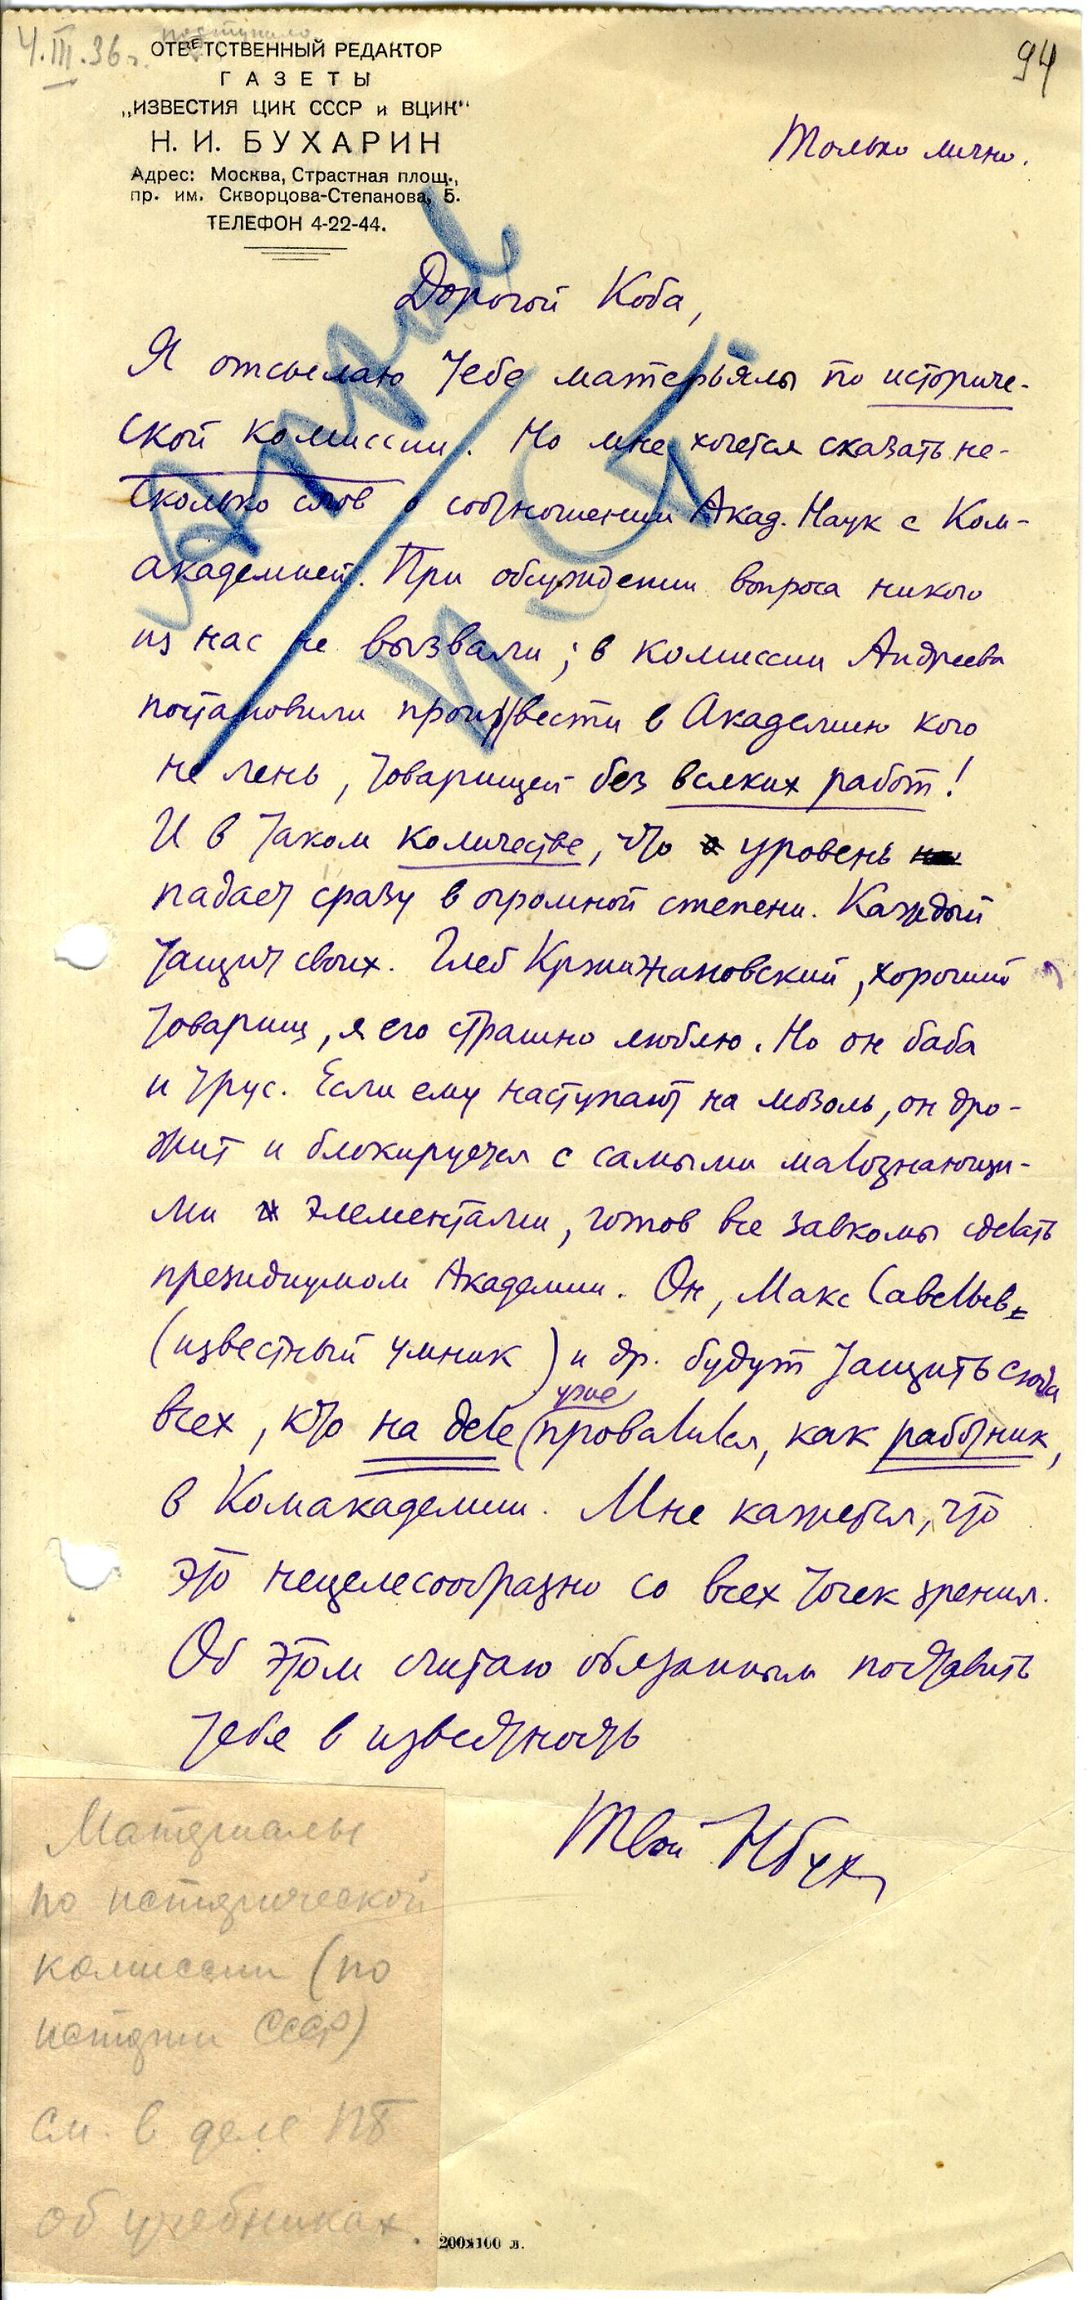 4.III.36 г. поступило
94
ОТВЕТСТВЕННЫЙ РЕДАКТОР
ГАЗЕТЫ
„ИЗВЕСТИЯ ЦИК СССР и ВЦИК“
Н. И. БУХАРИН
Адрес: Москва, Страстная площ.,
пр. им. Скворцова-Степанова, 5.
ТЕЛЕФОН 4-22-44.
Только лично.
Дорогой Коба,
Я отсылаю тебе матерьялы по историче-
ской комиссии. Но мне хочется сказать не-
сколько слов о соотношении Акад. Наук с Ком-
академией. При обсуждении вопроса никого
из нас не вызвали; в комиссии Андреева
постановили произвести в Академию кого
не лень, товарищей без всяких работ!
И в таком количестве, что уровень
падает сразу в огромной степени. Каждый
тащит своих. Глеб Кржижановский, хороший
товарищ, я его страшно люблю. Но он баба
и трус. Если ему наступают на мозоль, он дро-
жит и блокируется с самыми малознающи-
ми элементами, готов все завкомы сделать
президиумом Академии. Он, Макс Савельев
(известный умник) и др. будут тащить сюда
всех, кто на деле уже провалился, как работник,
в Комакадемии. Мне кажется, что
это нецелесообразно со всех точек зрения.
Об этом считаю обязанным поставить
тебя в известность
Твой НБух
Материалы
по исторической
комиссии (по
истории СССР)
см. в деле ПБ
об учебниках.
200х100 л.